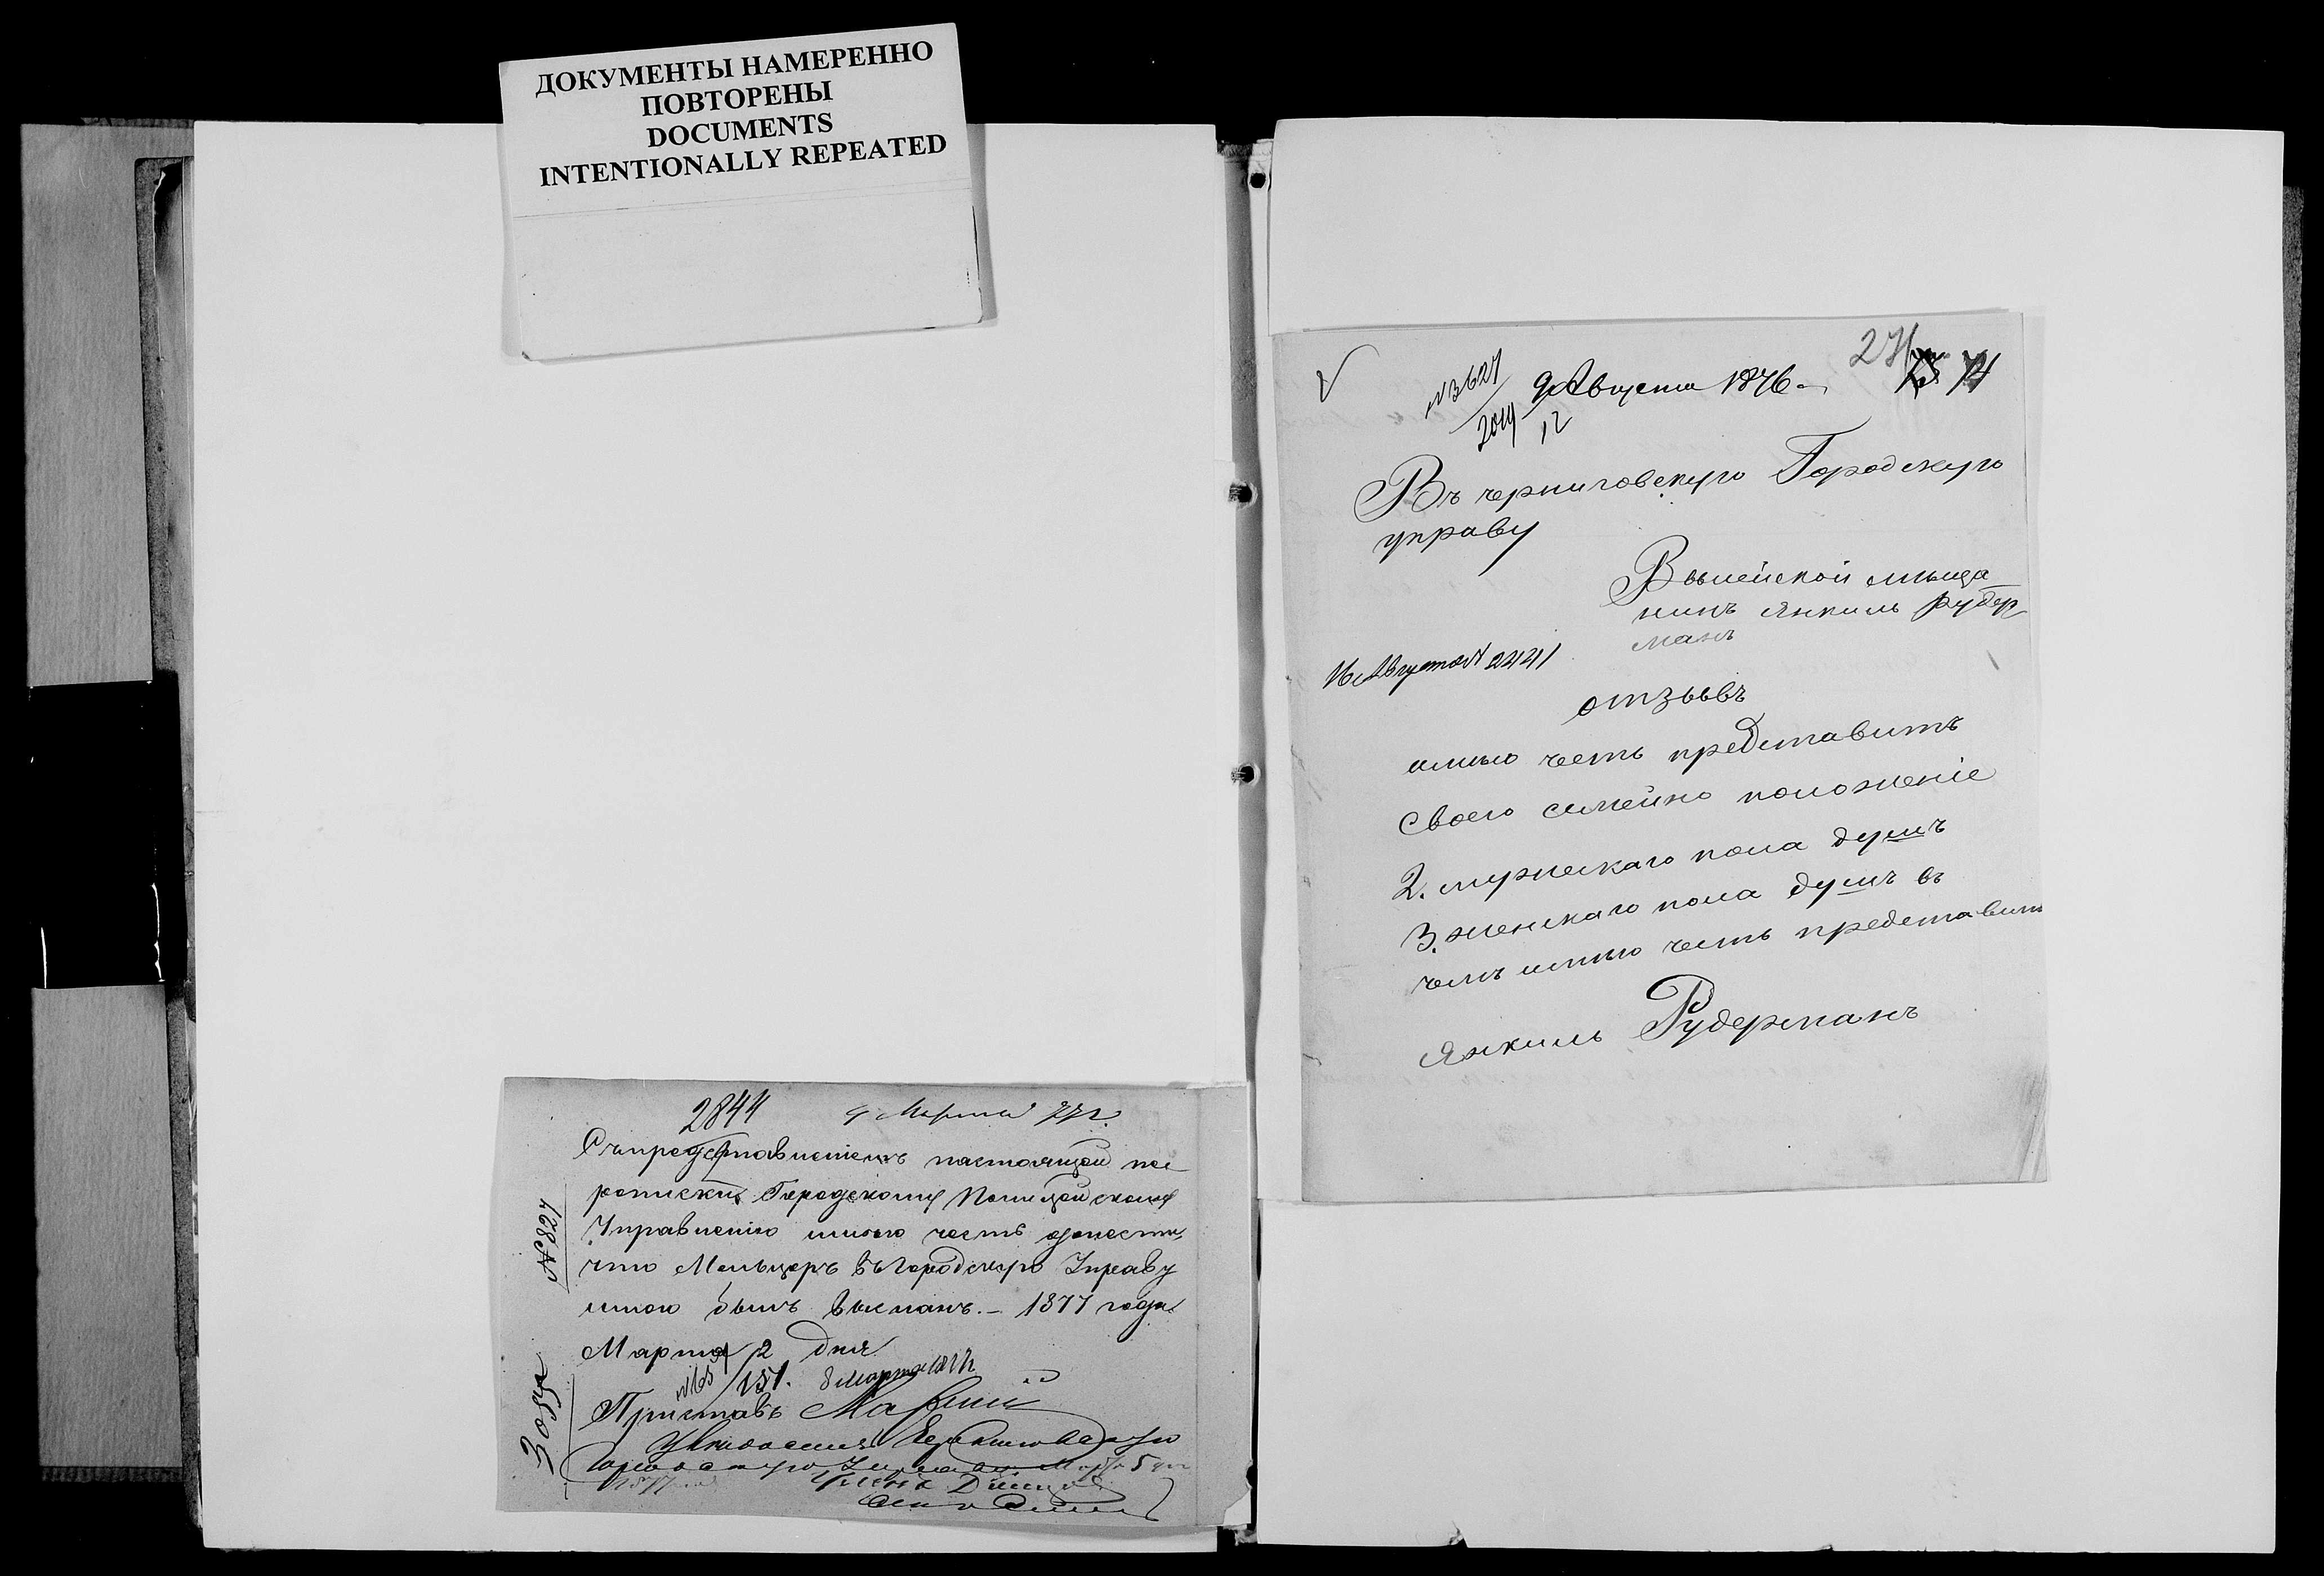 ДОКУМЕНТЫ НАМЕРЕННО
ПОВТОРЕНЫ
DOCUMENTS
INTENTIONALLY REPEATED
2844 4 Марта 77 г.
Съ представленіемъ настоящей пе
реписки Городскому Полицейскому
Управленію имѣю честь донести,
что Мельцеръ въ городскую Управу
мною былъ высланъ. – 1877 года
Марта 2 дня
№ 827
151. 8 Марта 1877
Приставъ
271
№ 3627 9 Августа 1876 74
2019 12
Въ черниговскую Городскую
управу
мѣща
нинъ Янкиль Рудер
манъ
16 Августа № 2441
отзывъ
имѣю честь представитъ
своего семейно положеніе
2. мужескаго пола душъ
3. женскаго пола душъ въ
чемъ имѣю честь представит
Янкиль Рудерманъ